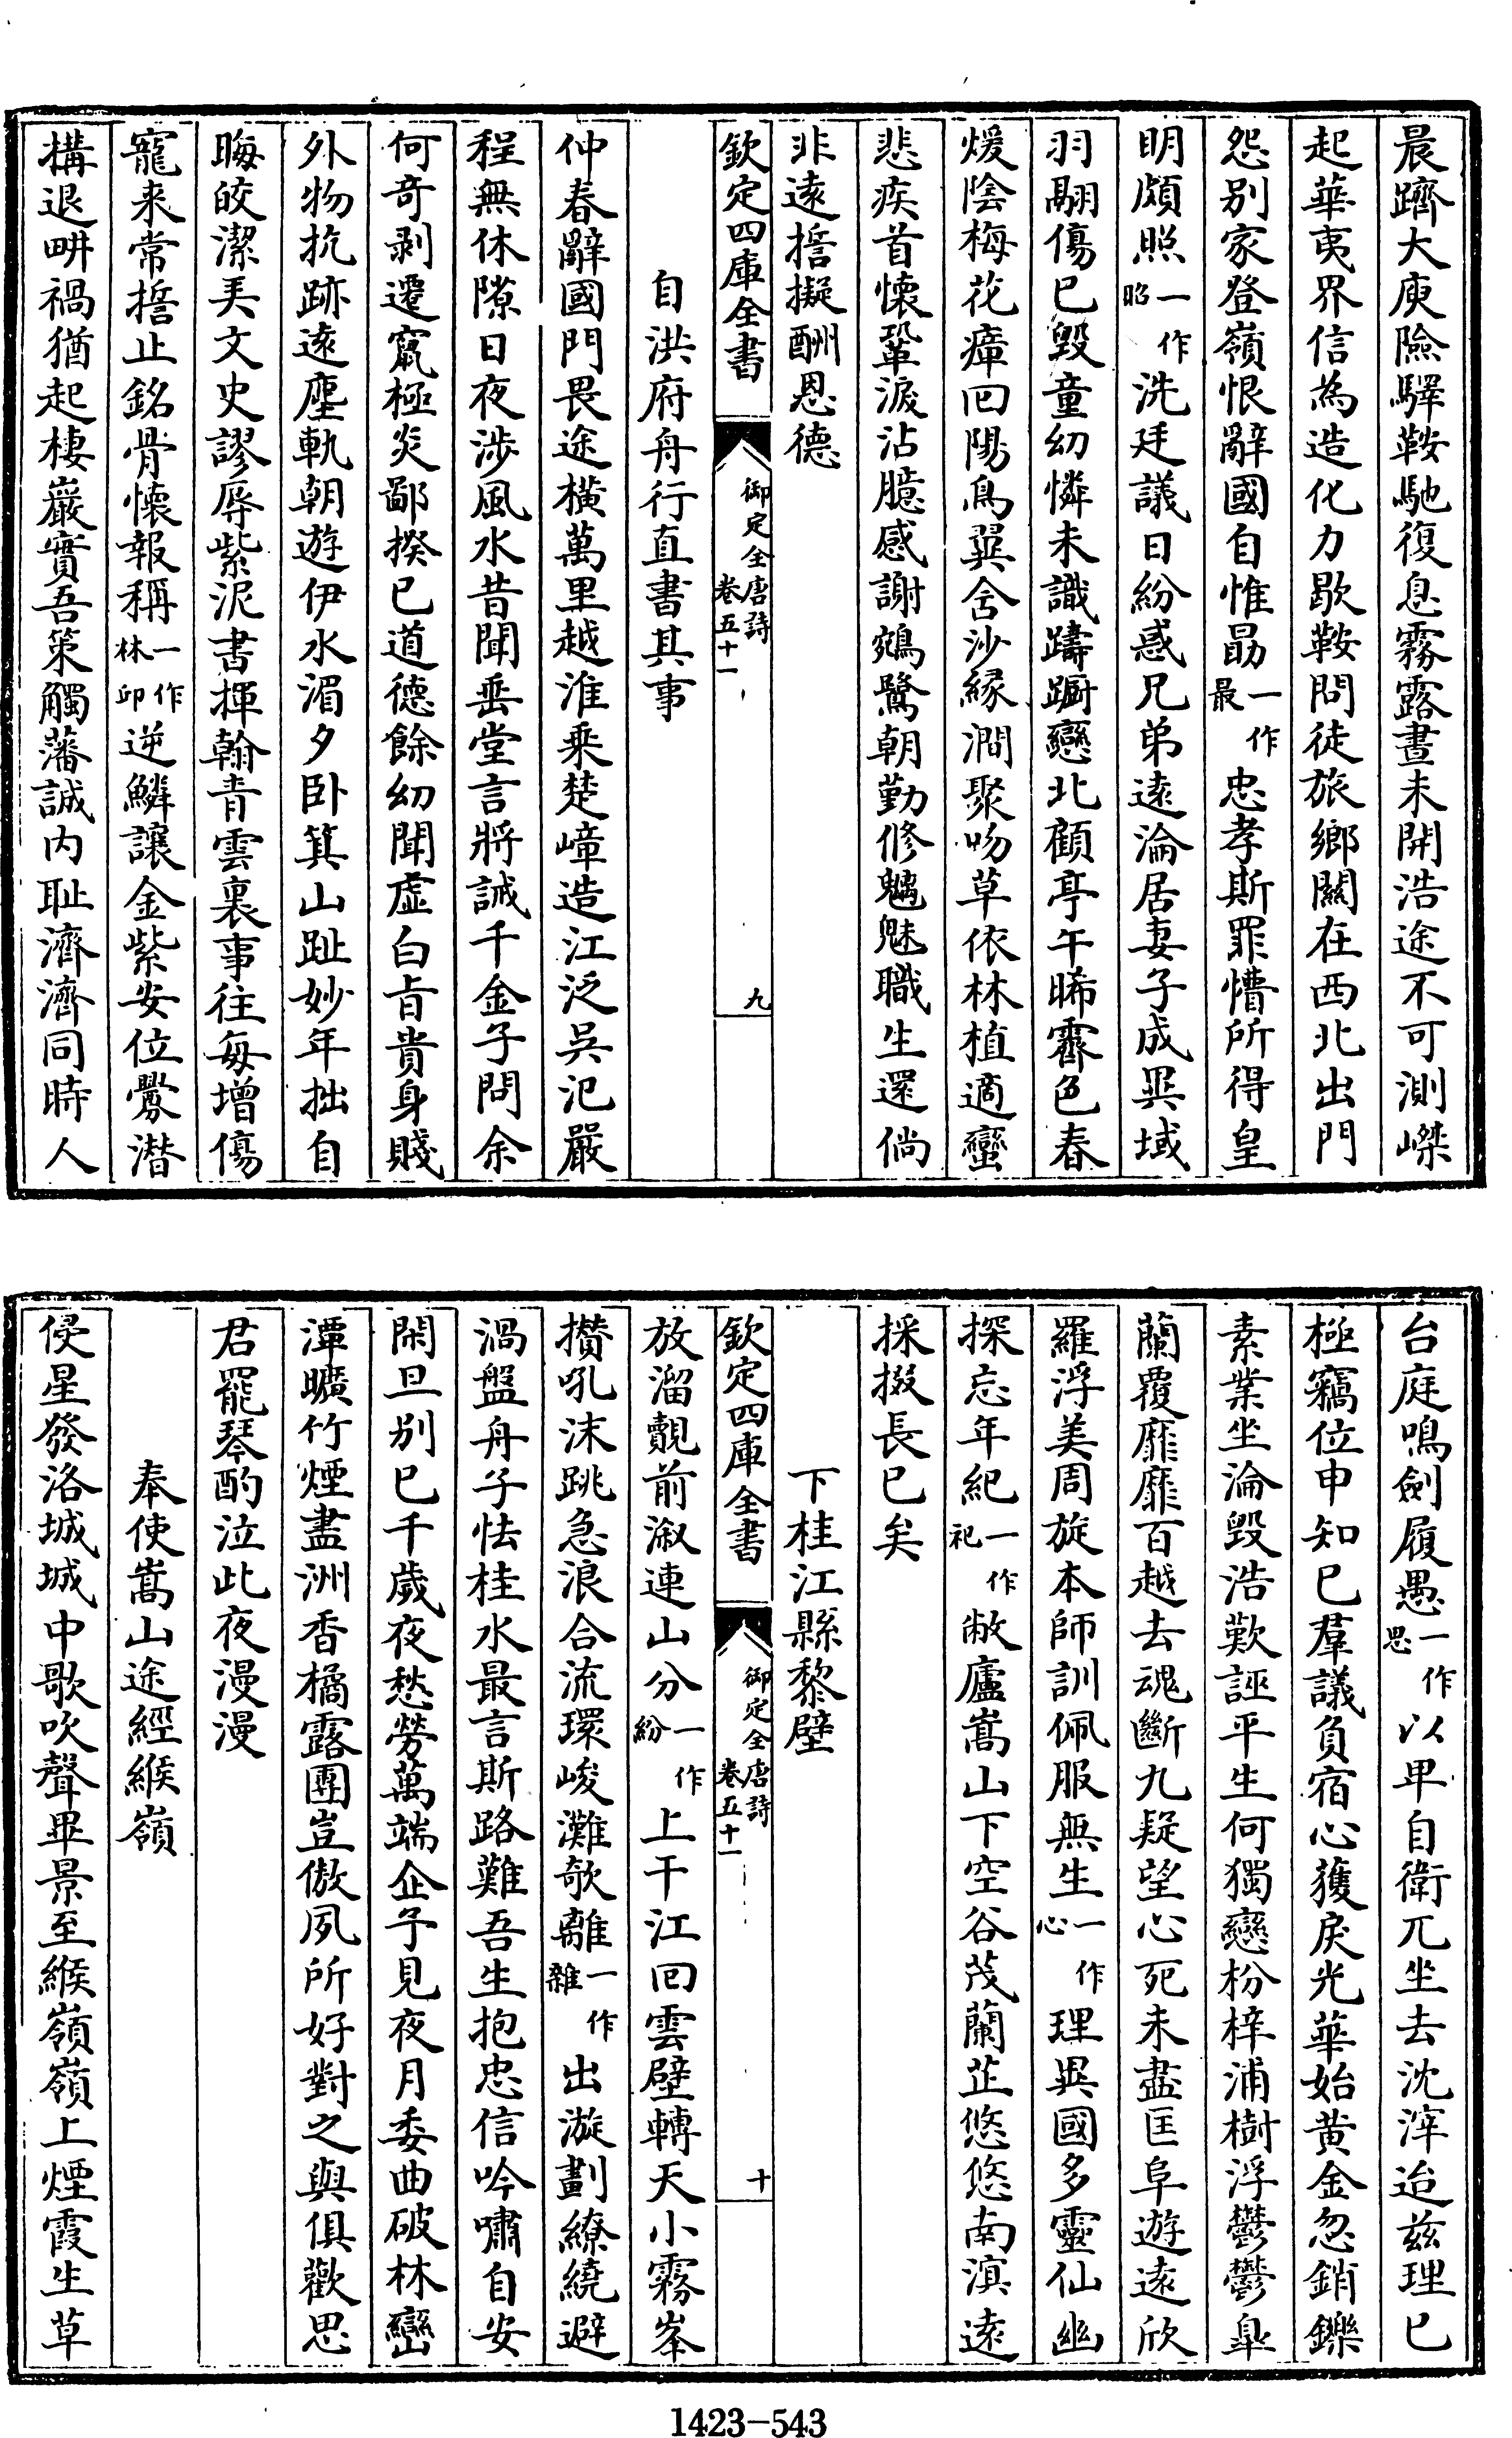 晨躋大庾險驛鞍馳復息霧露晝未開浩途不可測嶸
起華夷界信為造化力歇鞍問徒旅鄉關在西北出門
怨别家登嶺恨辭國自惟勗一作最忠孝斯罪懵所得皇
明頗照一作昭洗廷議日紛惑兄弟遠淪居妻子成異域
羽翮傷已毀童幼憐未識躊蹰戀北顧亭午晞霽色春
煖陰梅花瘴回陽鳥翼含沙緣澗聚吻草依林植適蠻
悲疾首懷鞏淚沾臆感謝鵷鷺朝勤修魑魅職生還倘
非遠誓擬酬恩德
欽定四庫全書
御定全唐詩
卷五十一
九
自洪府舟行直書其事
仲春辭國門畏途横萬里越淮乘楚嶂造江泛吳汜嚴
程無休隙日夜涉風水昔聞垂堂言將誡千金子問余
何奇剥遷竄極炎鄙揆已道德餘幼聞虚白旨貴身賤
外物抗跡遠塵軌朝遊伊水湄夕卧箕山趾妙年拙自
晦皎潔弄文史謬辱紫泥書揮翰青雲裏事往每增傷
寵来常誓止銘骨懷報稱一作林卭逆鱗讓金紫安位釁潛
搆退畊禍猶起棲巖實吾策觸藩誠内耻濟濟同時人
台庭鳴劍履愚一作思以卑自衛兀坐去沈滓迨兹理已
極竊位申知已羣議負宿心獲戾光華始黄金忽銷鑠
素業坐淪毀浩歎誣平生何獨戀枌梓浦樹浮鬱鬱臯
蘭覆靡靡百越去魂斷九疑望心死未盡匡阜遊遠欣
羅浮美周旋本師訓佩服無生一作心理異國多靈仙幽
探忘年紀一作祀敝廬嵩山下空谷茂蘭芷悠悠南溟遠
採掇長已矣
下桂江縣黎壁
欽定四庫全書
御定全唐詩
卷五十一
十
放溜觌前溆連山分一作紛上干江回雲壁轉天小霧峯
攢吼沫跳急浪合流環峻灘欹離一作雜出漩劃繚繞避
渦盤舟子怯桂水最言斯路難吾生抱忠信吟嘯自安
閑旦别已千歲夜愁勞萬端企予見夜月委曲破林巒
潭曠竹煙盡洲香橘露團豈傲夙所好對之與俱歡思
君罷琴酌泣此夜漫漫
奉使嵩山途經緱嶺
侵星發洛城城中歌吹聲畢景至緱嶺嶺上煙霞生草
1423-543